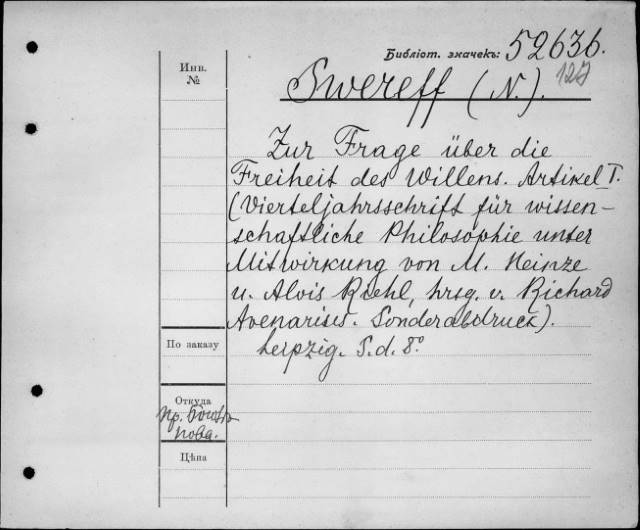 Библіот. значекъ: 52636.
127
Инв.
№
Swereff (N.).
Zur Frage über die
Freiheit des Willens. Artikel I.
(Vierteljahrsschrift für wissen-
schaftliche Philosophie unter
Mitwirkung von M. Heinze
u. Alois Riehl, hrsg. v. Richard
Avenarius. Sonderabdruck).
Leipzig. S.d. 8°
По заказу
Откуда
Пр.
Цѣна